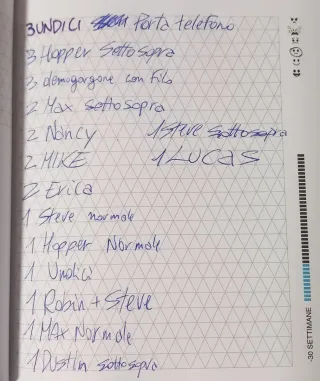 3 UNDICI Porta telefono
3 Hopper Sottosopra
3 demogorgone con filo
2 Max sottosopra
2 Nancy 1 Steve sottosopra
2 MIKE 1 LUCAS
2 Erica
1 Steve normale
1 Hopper Normale
1 Undici
1 Robin + Steve
1 MAX Normale
1 Dustin sottosopra
-30 SETTIMANE